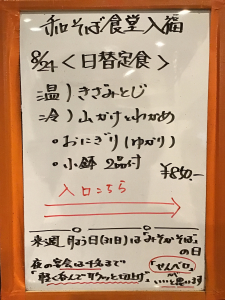 手和そば食堂入福
8/24<日替定食>
温)きざみとじ
冷)山かけとわかめ
・おにぎり(ゆかり)
・小鉢 2品付
¥850.-
入口こちら
来週 月よう日(31日)は「みそかそば」
の日
夜の宴会は千名まで
「軽く呑んでサクッと切上げ」
「せんべろ」
が
いいと思います